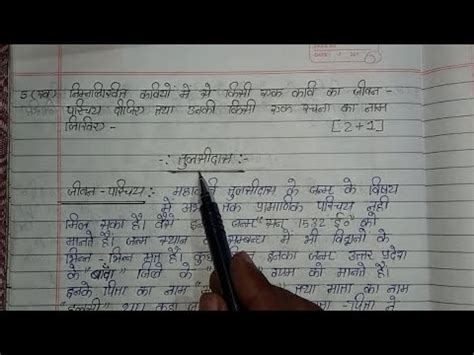 5 (ख) निम्नलिखित कवियों में से किसी एक कवि का जीवन-
परिचय दीजिए तथा उनकी किसी एक रचना का नाम
लिखिए - [2+1]
-: तुलसीदास :-
जीवन - परिचय :- महाकवि तुलसीदास के जन्म के विषय
में अभी तक प्रामाणिक परिचय नहीं
मिल सका है। वैसे इनका जन्म सन् 1532 ई० को
मानते हैं। जन्म स्थान के सम्बन्ध में भी विद्वानो के
भिन्न - भिन्न मत हैं। इनका जन्म उत्तर प्रदेश
के "बाँदा" जिले के ग्राम को मानते हैं।
इनके पिता का नाम तथा माता का नाम
था। कहा पिता ने